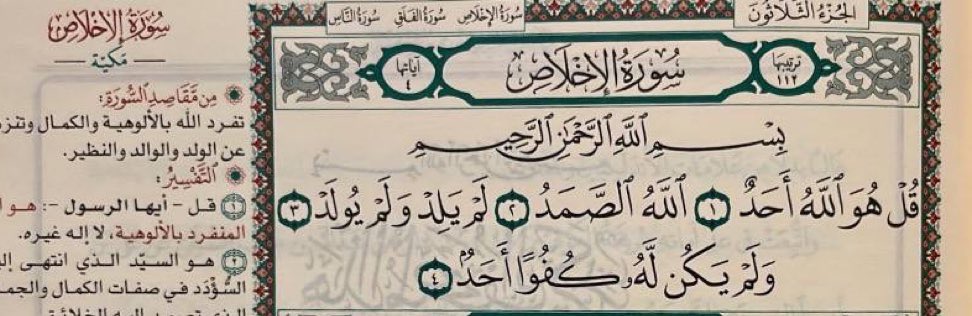 الجُزْءُ الثَّلَاثُونَ
سُورَةُ الإِخْلَاصِ سُورَةُ الفَلَقِ سُورَةُ النَّاسِ
ترتيبها ١١٢ سُورَةُ الإِخْلَاصِ آياتها ٤
بِسْمِ ٱللَّهِ ٱلرَّحْمَٰنِ ٱلرَّحِيمِ
قُلْ هُوَ ٱللَّهُ أَحَدٌ ١ ٱللَّهُ ٱلصَّمَدُ ٢ لَمْ يَلِدْ وَلَمْ يُولَدْ ٣
وَلَمْ يَكُن لَّهُۥ كُفُوًا أَحَدٌۢ ٤
سُورَةُ الإِخْلَاصِ
— مَكيّة —
مِن مَّقَاصِدِ السُّورَةِ:
تفرد الله بالألوهية والكمال وتنز
عن الولد والوالد والنظير.
التَّفْسِيرُ:
١ قل - أيها الرسول -: هو
المنفرد بالألوهية، لا إله غيره.
٢ هو السيّد الذي انتهى
السُّؤْدَد في صفات الكمال والجم